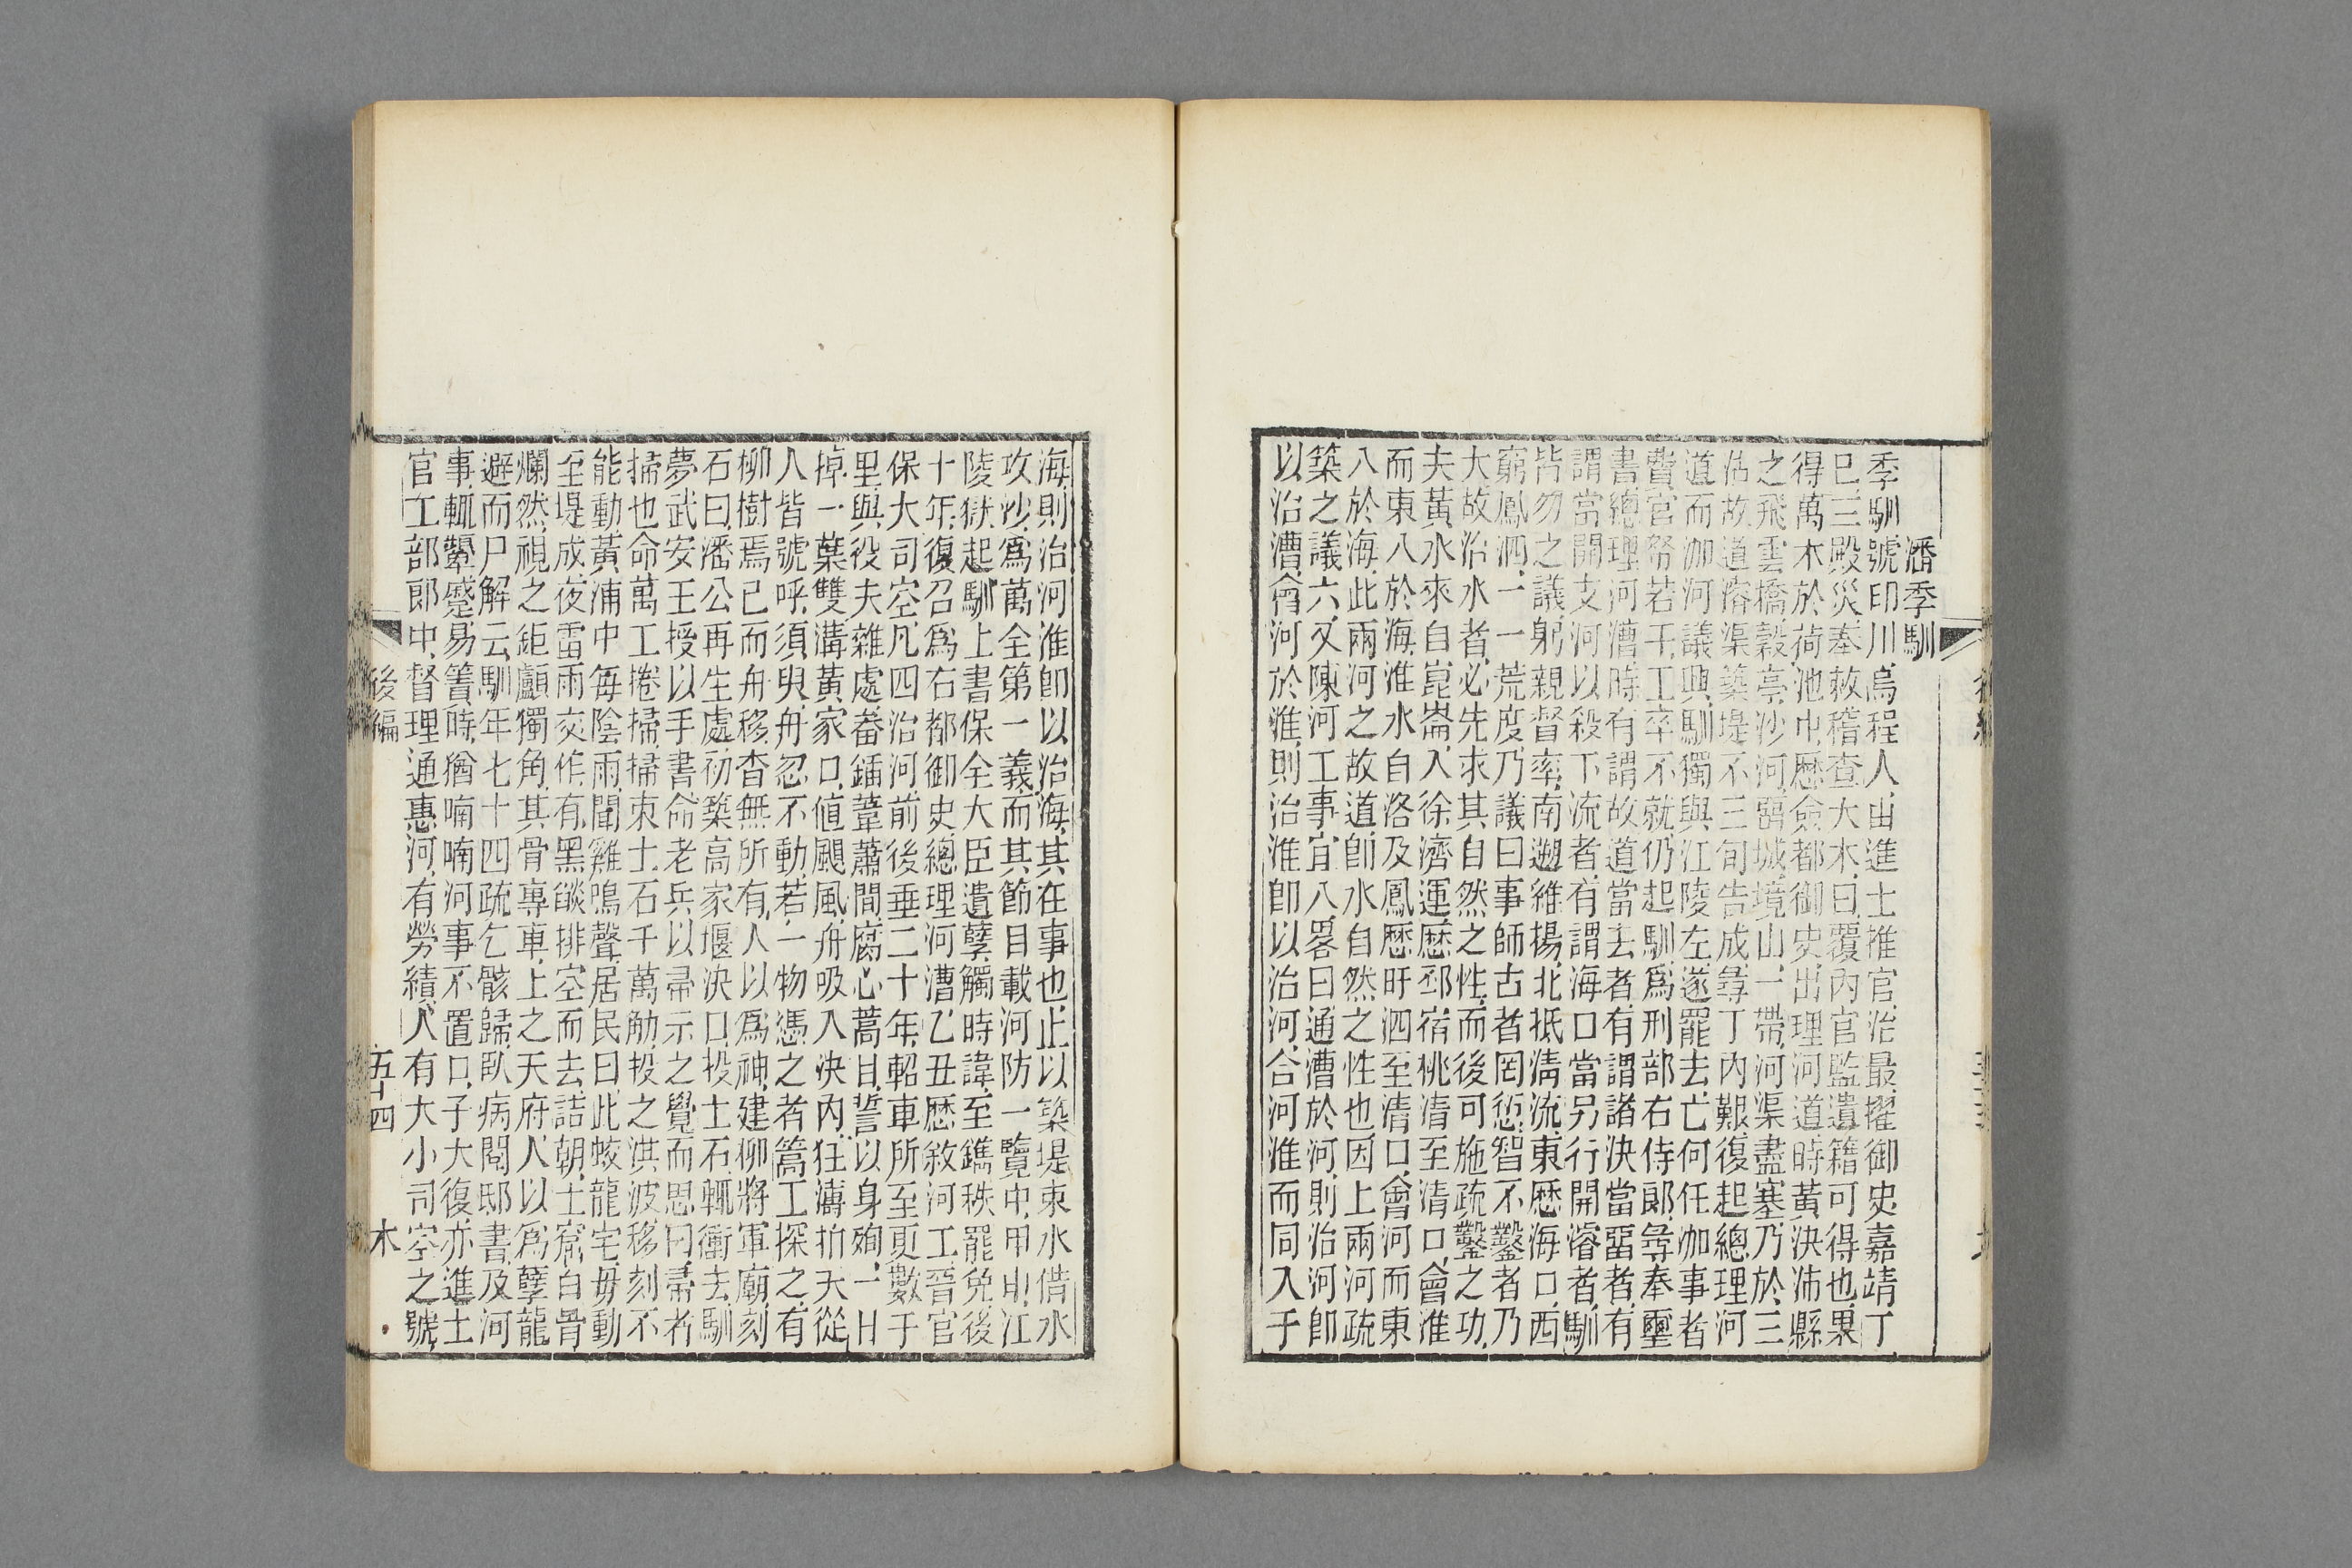 潘季馴
季馴號印川烏程人由進士推官治最擢御史嘉靖丁
巳三殿災奉敕稽查大木曰覆內官監遺籍可得也果
得萬木於荷池中歷僉都御史出理河道時黃決沛縣
之飛雲橋穀亭沙河畱城境山一帶河渠盡塞乃於三
沽故道濬渠築堤不三旬告成尋丁內艱復起總理河
道而泇河議興馴獨與江陵左遂罷去亡何任泇事者
費官帑若干工卒不就仍起馴爲刑部右侍郞尋奉璽
書總理河漕時有謂故道當去者有謂諸決當畱者有
謂當開支河以殺下流者有謂海口當另行開濬者馴
皆勿之議躬親督率南遡維揚北抵淸流東歷海口西
窮鳳泗一一荒度乃議曰事師古者罔愆智不鑿者乃
大故治水者必先求其自然之性而後可施疏鑿之功
夫黃水來自崑崙入徐濟運歷邳宿桃清至清口會淮
而東入於海淮水自洛及鳳歷盱泗至清口會河而東
入於海此兩河之故道卽水自然之性也因上兩河疏
築之議六又陳河工事宜八畧曰通漕於河則治河卽
以治漕會河於淮則治淮卽以治河合河淮而同入于
海則治河淮卽以治海其在事也止以築堤束水借水
攻沙爲萬全第一義而其節目載河防一覽中甲申江
陵獄起馴上書保全大臣遺孽觸時諱至鐫秩罷免後
十年復召爲右都御史總理河漕乙丑歷敘河工晉官
保大司空凡四治河前後垂二十年軺車所至更數千
里與役夫雜處畚鍤葦蕭間腐心蒿目誓以身殉一日
掉一葉雙溝黃家口値颶風舟吸入決內狂濤拍天從
人皆號呼須臾舟忽不動若一物憑之者篙工探之有
柳樹焉已而舟移杳無所有人以爲神建柳將軍廟刻
石曰潘公再生處初築高家堰決口投土石輒衝去馴
夢武安王授以手書命老兵以帚示之覺而思曰帚者
掃也命萬工捲掃掃束土石千萬觔投之洪波移刻不
能動黃浦中每陰雨聞雞鳴聲居民曰此蛟龍宅毋動
至堤成夜雷雨交作有黑燄排空而去詰朝土窟白骨
爛然視之鉅顱獨角其骨專車上之天府人以爲孽龍
避而尸解云馴年七十四疏乞骸歸臥病閱邸書及河
事輒顰蹙易簀時猶喃喃河事不置口子大復亦進士
官工部郞中督理通惠河有勞績人有大小司空之號
後編
五十四
木